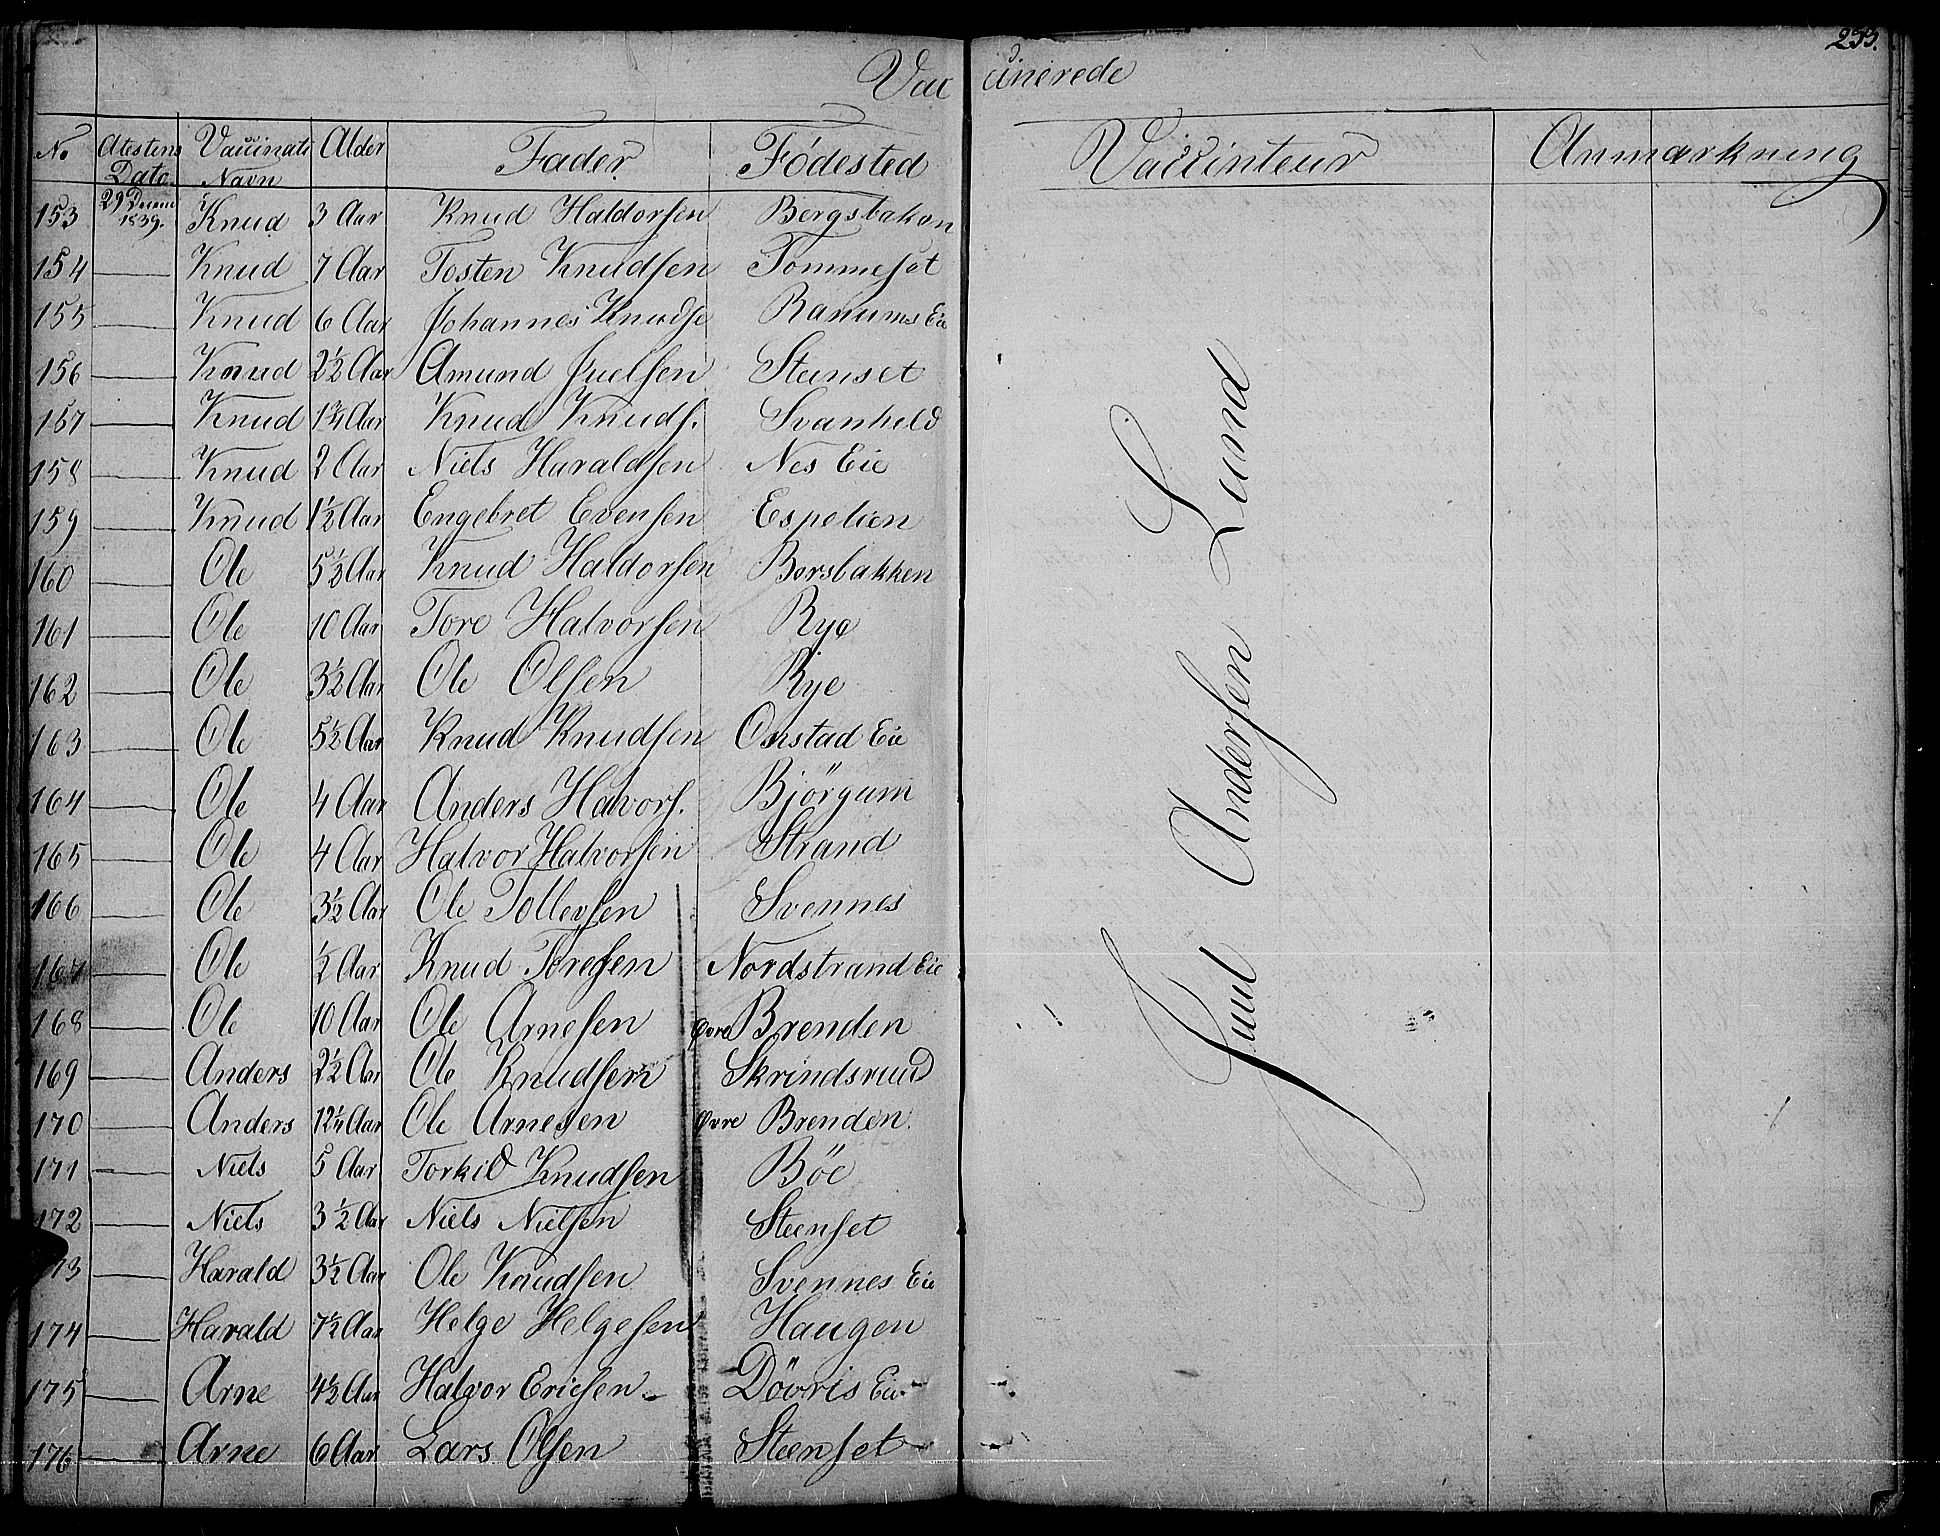 233.
Vaccinerede
No Atestens Dato Vaccinati Navn Alder Fader Födested Vaccinteur Anmærkning
153 29 Decem 1839. Knud 3 Aar Knud Haldorsen Bergsbakon
154 — Knud 7 Aar Tosten Knudsen Tommeset
155 — Knud 6 Aar Johannes Knudse Ranums Eie
156 — Knud 2½ Aar Amund Juelsen Steenset
157 — Knud 1¾ Aar Knud Knuds. Svanheld
158 — Knud 2 Aar Niels Haraldsen Nes Eie
159 — Knud 1½ Aar Engebret Evensen Espelien
160 — Ole 5½ Aar Knud Haldorsen Borsbakken
161 — Ole 10 Aar Tore Halvorsen Rye
162 — Ole 3½ Aar Ole Olsen Rye
163 — Ole 5½ Aar Knud Knudsen Onstad Eie
164 — Ole 4 Aar Anders Halvors. Bjørgum
165 — Ole 4 Aar Halvor Halvorsen Strand
166 — Ole 3½ Aar Ole Tollevsen Svennes
167 — Ole ½ Aar Knud Toresen Nordstrand Eie
168 — Ole 10 Aar Ole Arnesen øvre Brenden
169 — Anders 2½ Aar Ole Knudsen Skrindsrud
170 — Anders 12¼ Aar Ole Arnesen Øvre Brenden.
171 — Niels 5 Aar Torkild Knudsen Böe
172 — Niels 3½ Aar Niels Nielsen Steenset
173 — Harald 3½ Aar Ole Knudsen Svennes Eie
174 — Harald 7½ Aar Helge Helgesen Haugen
175 — Arne 4½ Aar Halvor Ericsen Dövris Eie
176 — Arne 6 Aar Lars Olsen Steenset
Juul Andersen Lund